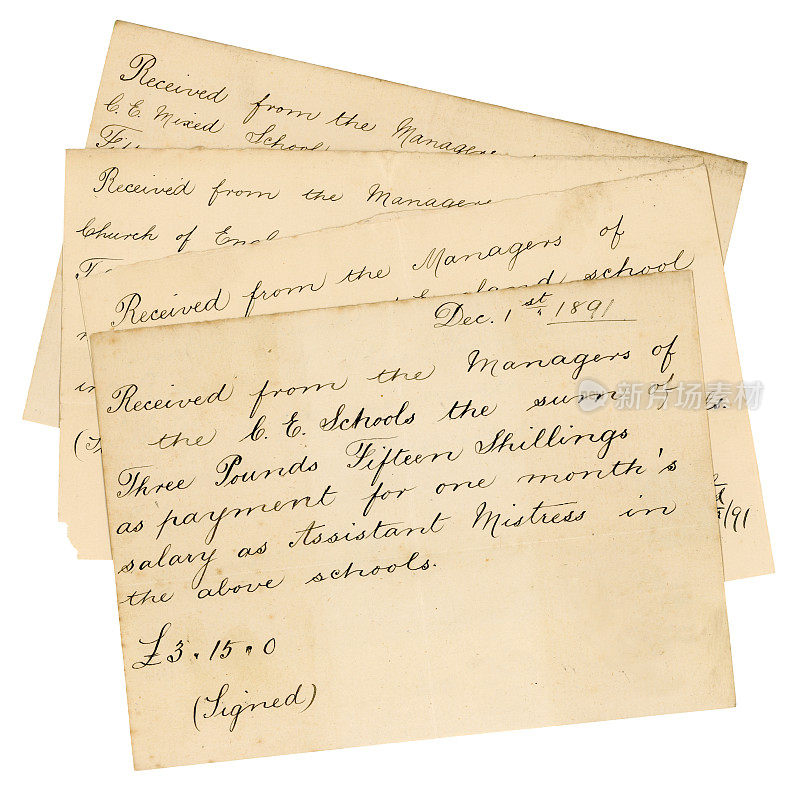 Received from the Manager
C. E. Mixed School
Received from the Manager
Church of Engl
Received from the Managers of
England school
in
Dec. 1st. 1891
Received from the Managers of
the C. E. Schools the sum of
Three Pounds Fifteen Shillings
as payment for one month's
salary as Assistant Mistress in
the above schools.
£3.15.0
(Signed)
/91
新片场素材